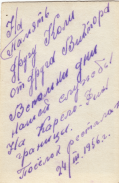 На
Память
Другу Коли
от друга Виктора
Вспомни дни
нашей службы
На Карело-Фин
границы.
Посёлок
24/III 1966 г.